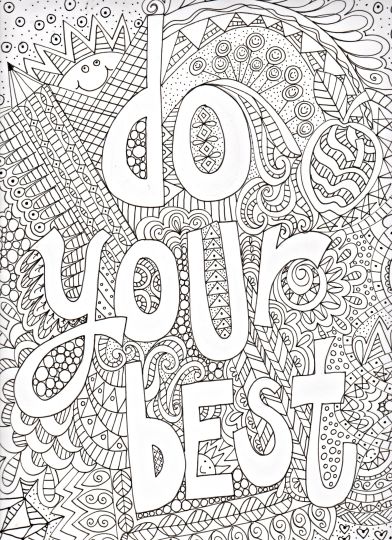 do
your
bEST